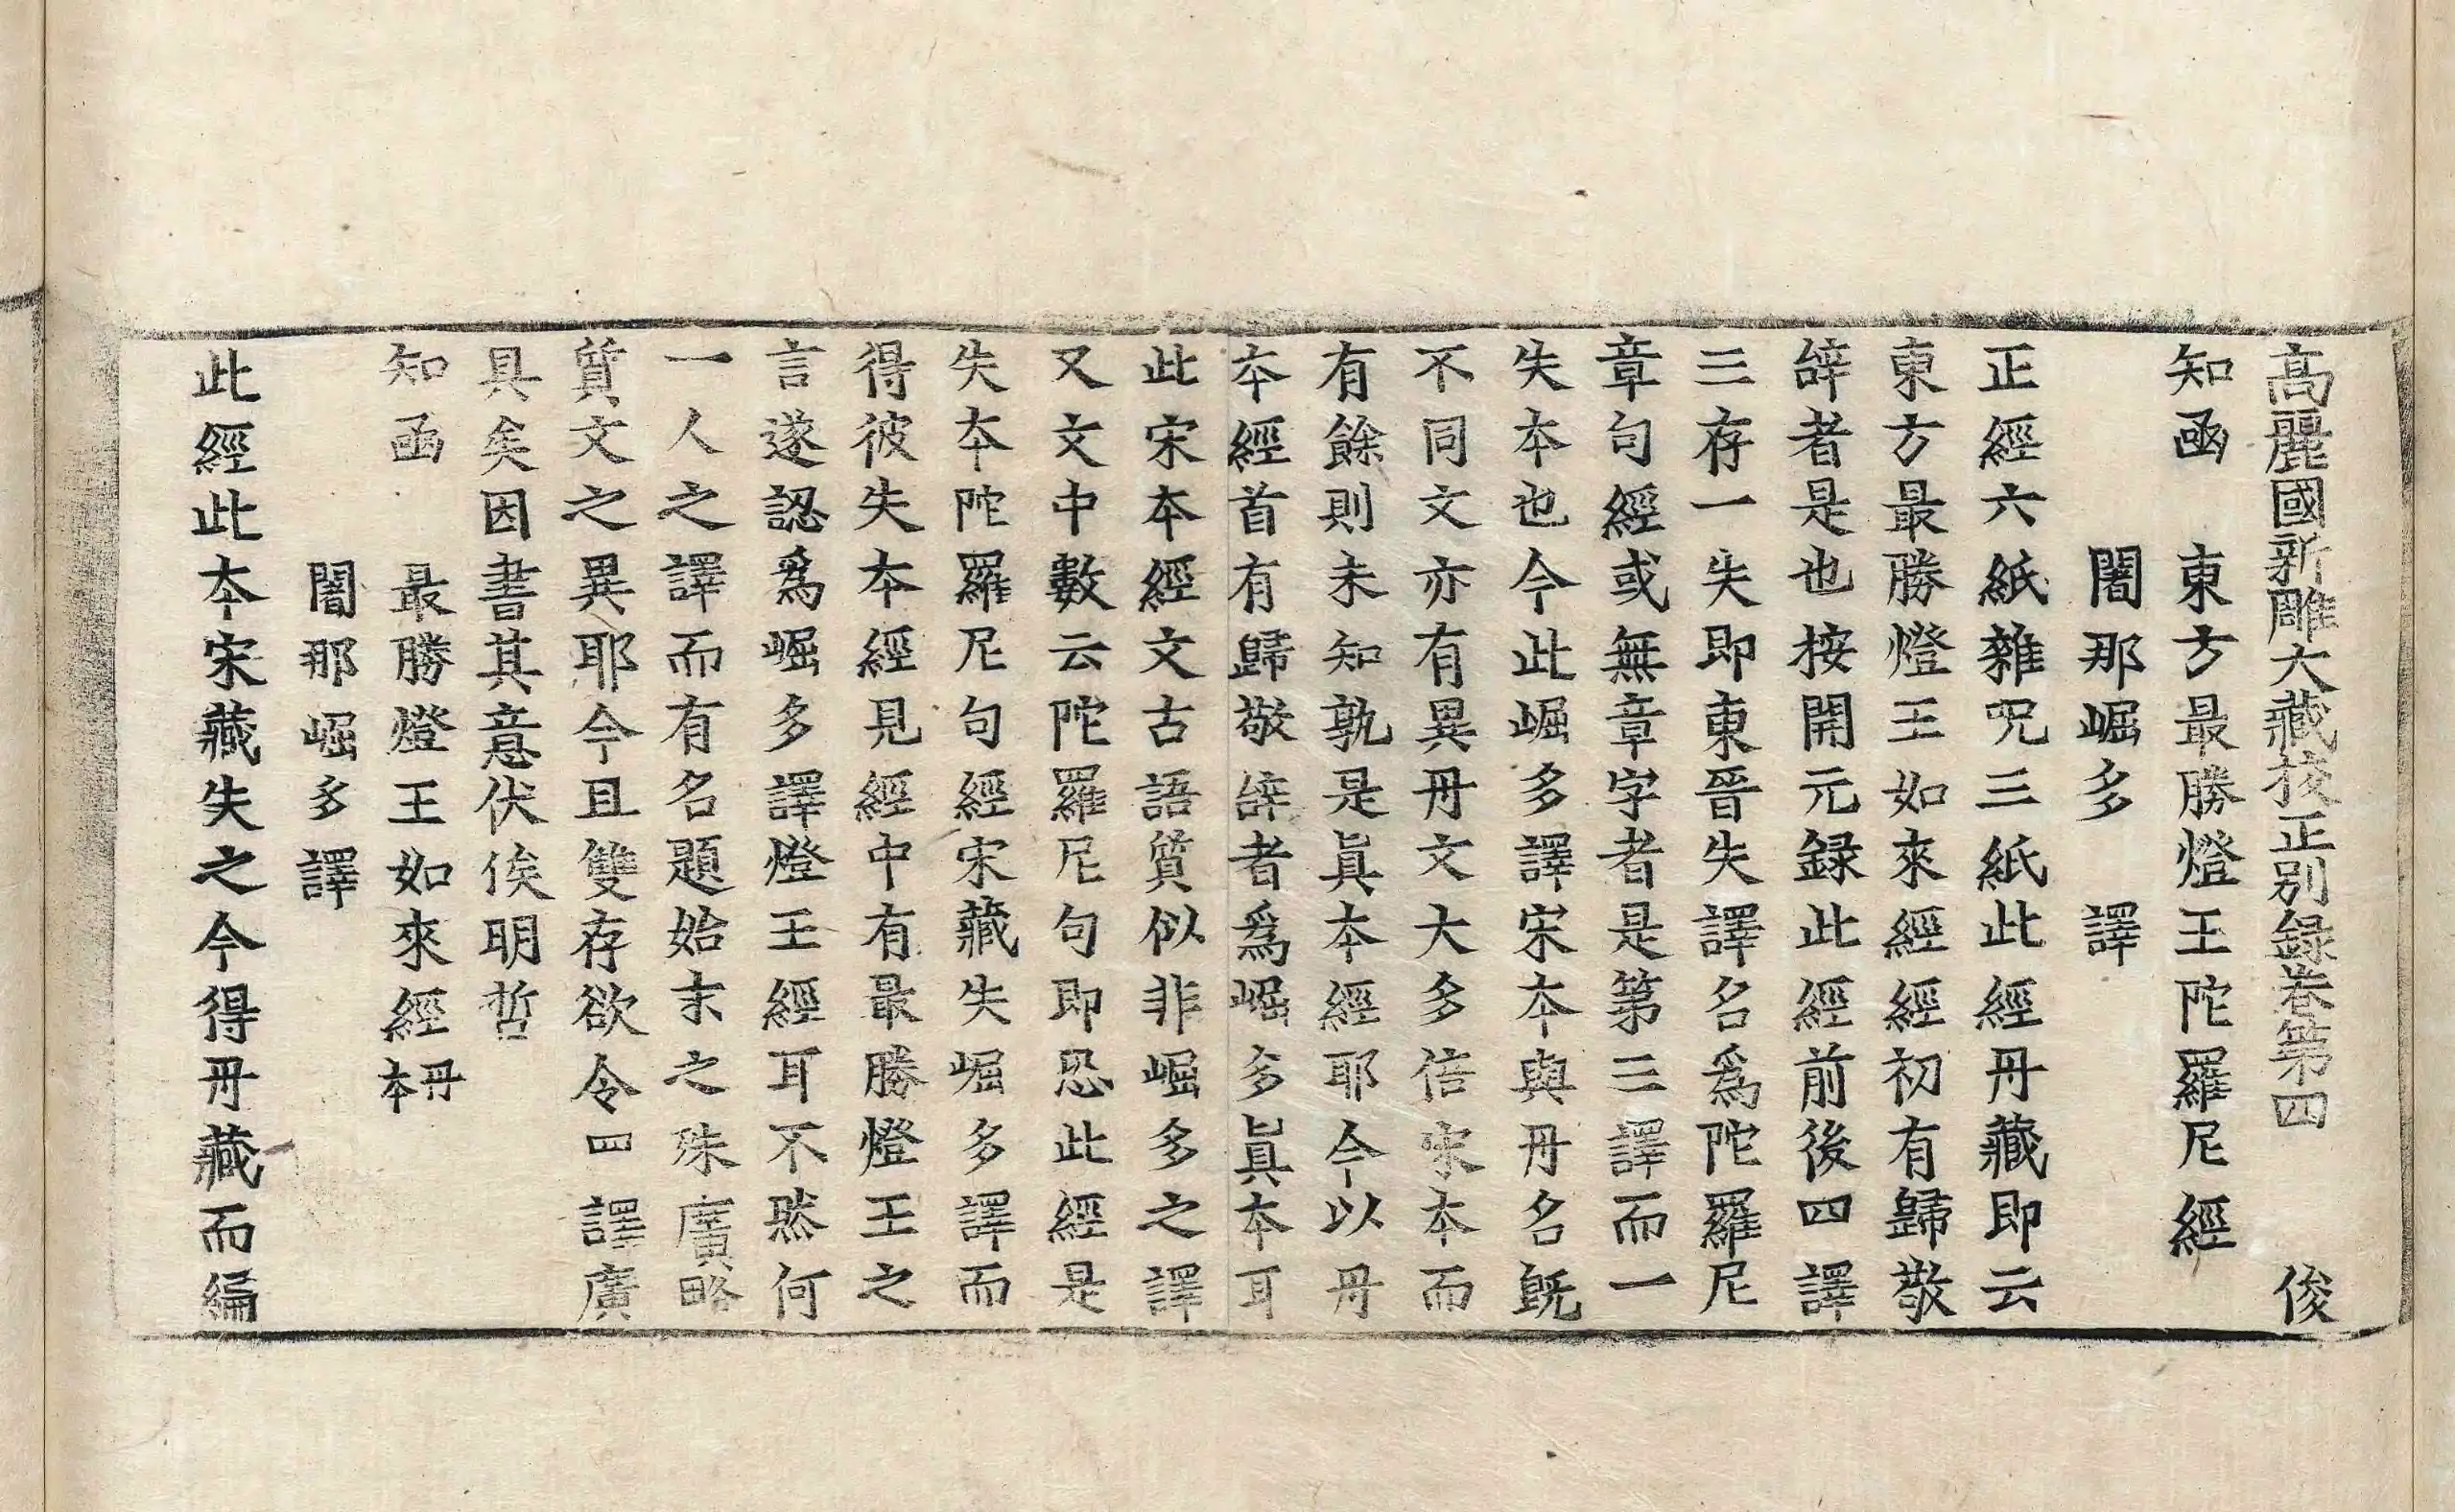 高麗國新雕大藏挍正別録卷第四 俊
知函 東方最勝燈王陀羅尼經
闍那崛多 譯
正經六紙雜呪三紙此經丹藏即云
東方最勝燈王如來經經初有歸敬
辝者是也按開元録此經前後四譯
三存一失即東晉失譯名爲陀羅尼
章句經或無章字者是第三譯而一
失本也今此崛多譯宋本與丹名旣
不同文亦有異丹文大多倍宋本而
有餘則未知孰是眞本經耶今以丹
本經首有歸敬辝者爲崛多眞本耳
此宋本經文古語質似非崛多之譯
又文中數云陀羅尼句即恐此經是
失本陀羅尼句經宋藏失崛多譯而
得彼失本經見經中有最勝燈王之
言遂認爲崛多譯燈王經耳不然何
一人之譯而有名題始末之殊廣略
質文之異耶今且雙存欲令四譯廣
具矣因書其意伏俟明哲
知函 最勝燈王如來經丹本
闍那崛多譯
此經此本宋藏失之今得丹藏而編